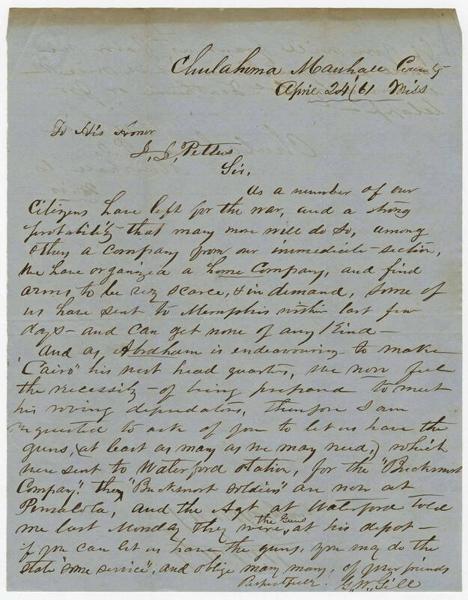 Chulahoma Marshall County
April 24/61 Miss
To His Honor
J. J. Pettus
Sir,
As a number of our
Citizens have left for the war, and a strong
probability that many more will do so, among
others a company from our immediate section,
we have organized a home Company, and find
arms to be very scarce, & in demand, some of
us have sent to Memphis within last few
days - and can get none of any kind -
and as Abraham is endeavouring to make
"Cairo" his next head quarters, we now feel
the necessity - of being prepared to meet
his roving depredators, therefore I am
requested to ask of you to let us have the
guns, (at least as many as we may need,) which
were sent to Waterford Station, for the "Bucksnort
Company". The "Bucksnort Soldiers" are now at
Pensacola, and the Agt. at Waterford told
me last Monday they the Guns were, at his depot -
if you can let us have the guns, you may do the
"state some service", and oblige many many, of your friends
Respectfully. G. W. Gill